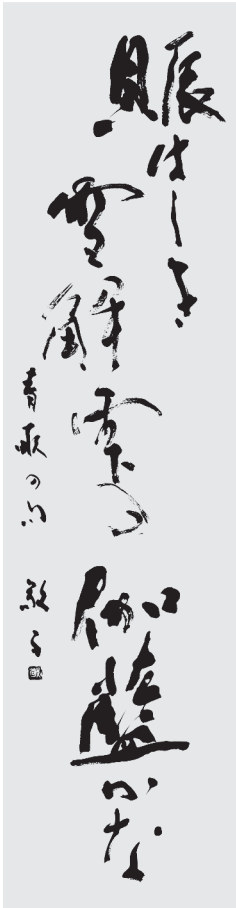 賑はしき
雪解雫の
伽藍かな
青畝の句